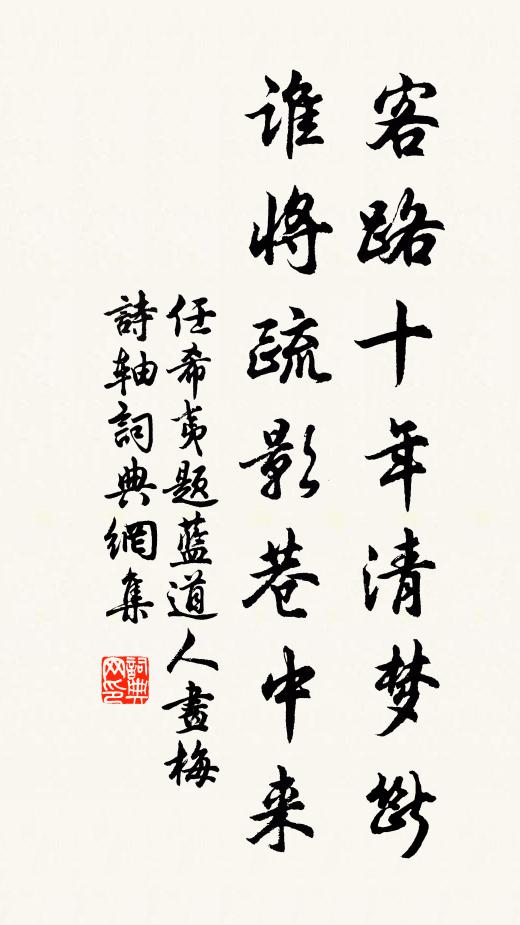 客路十年清梦断
谁将疏影巷中来
任希夷题蓝道人畫梅
詩轴詞典網集
詞典网印